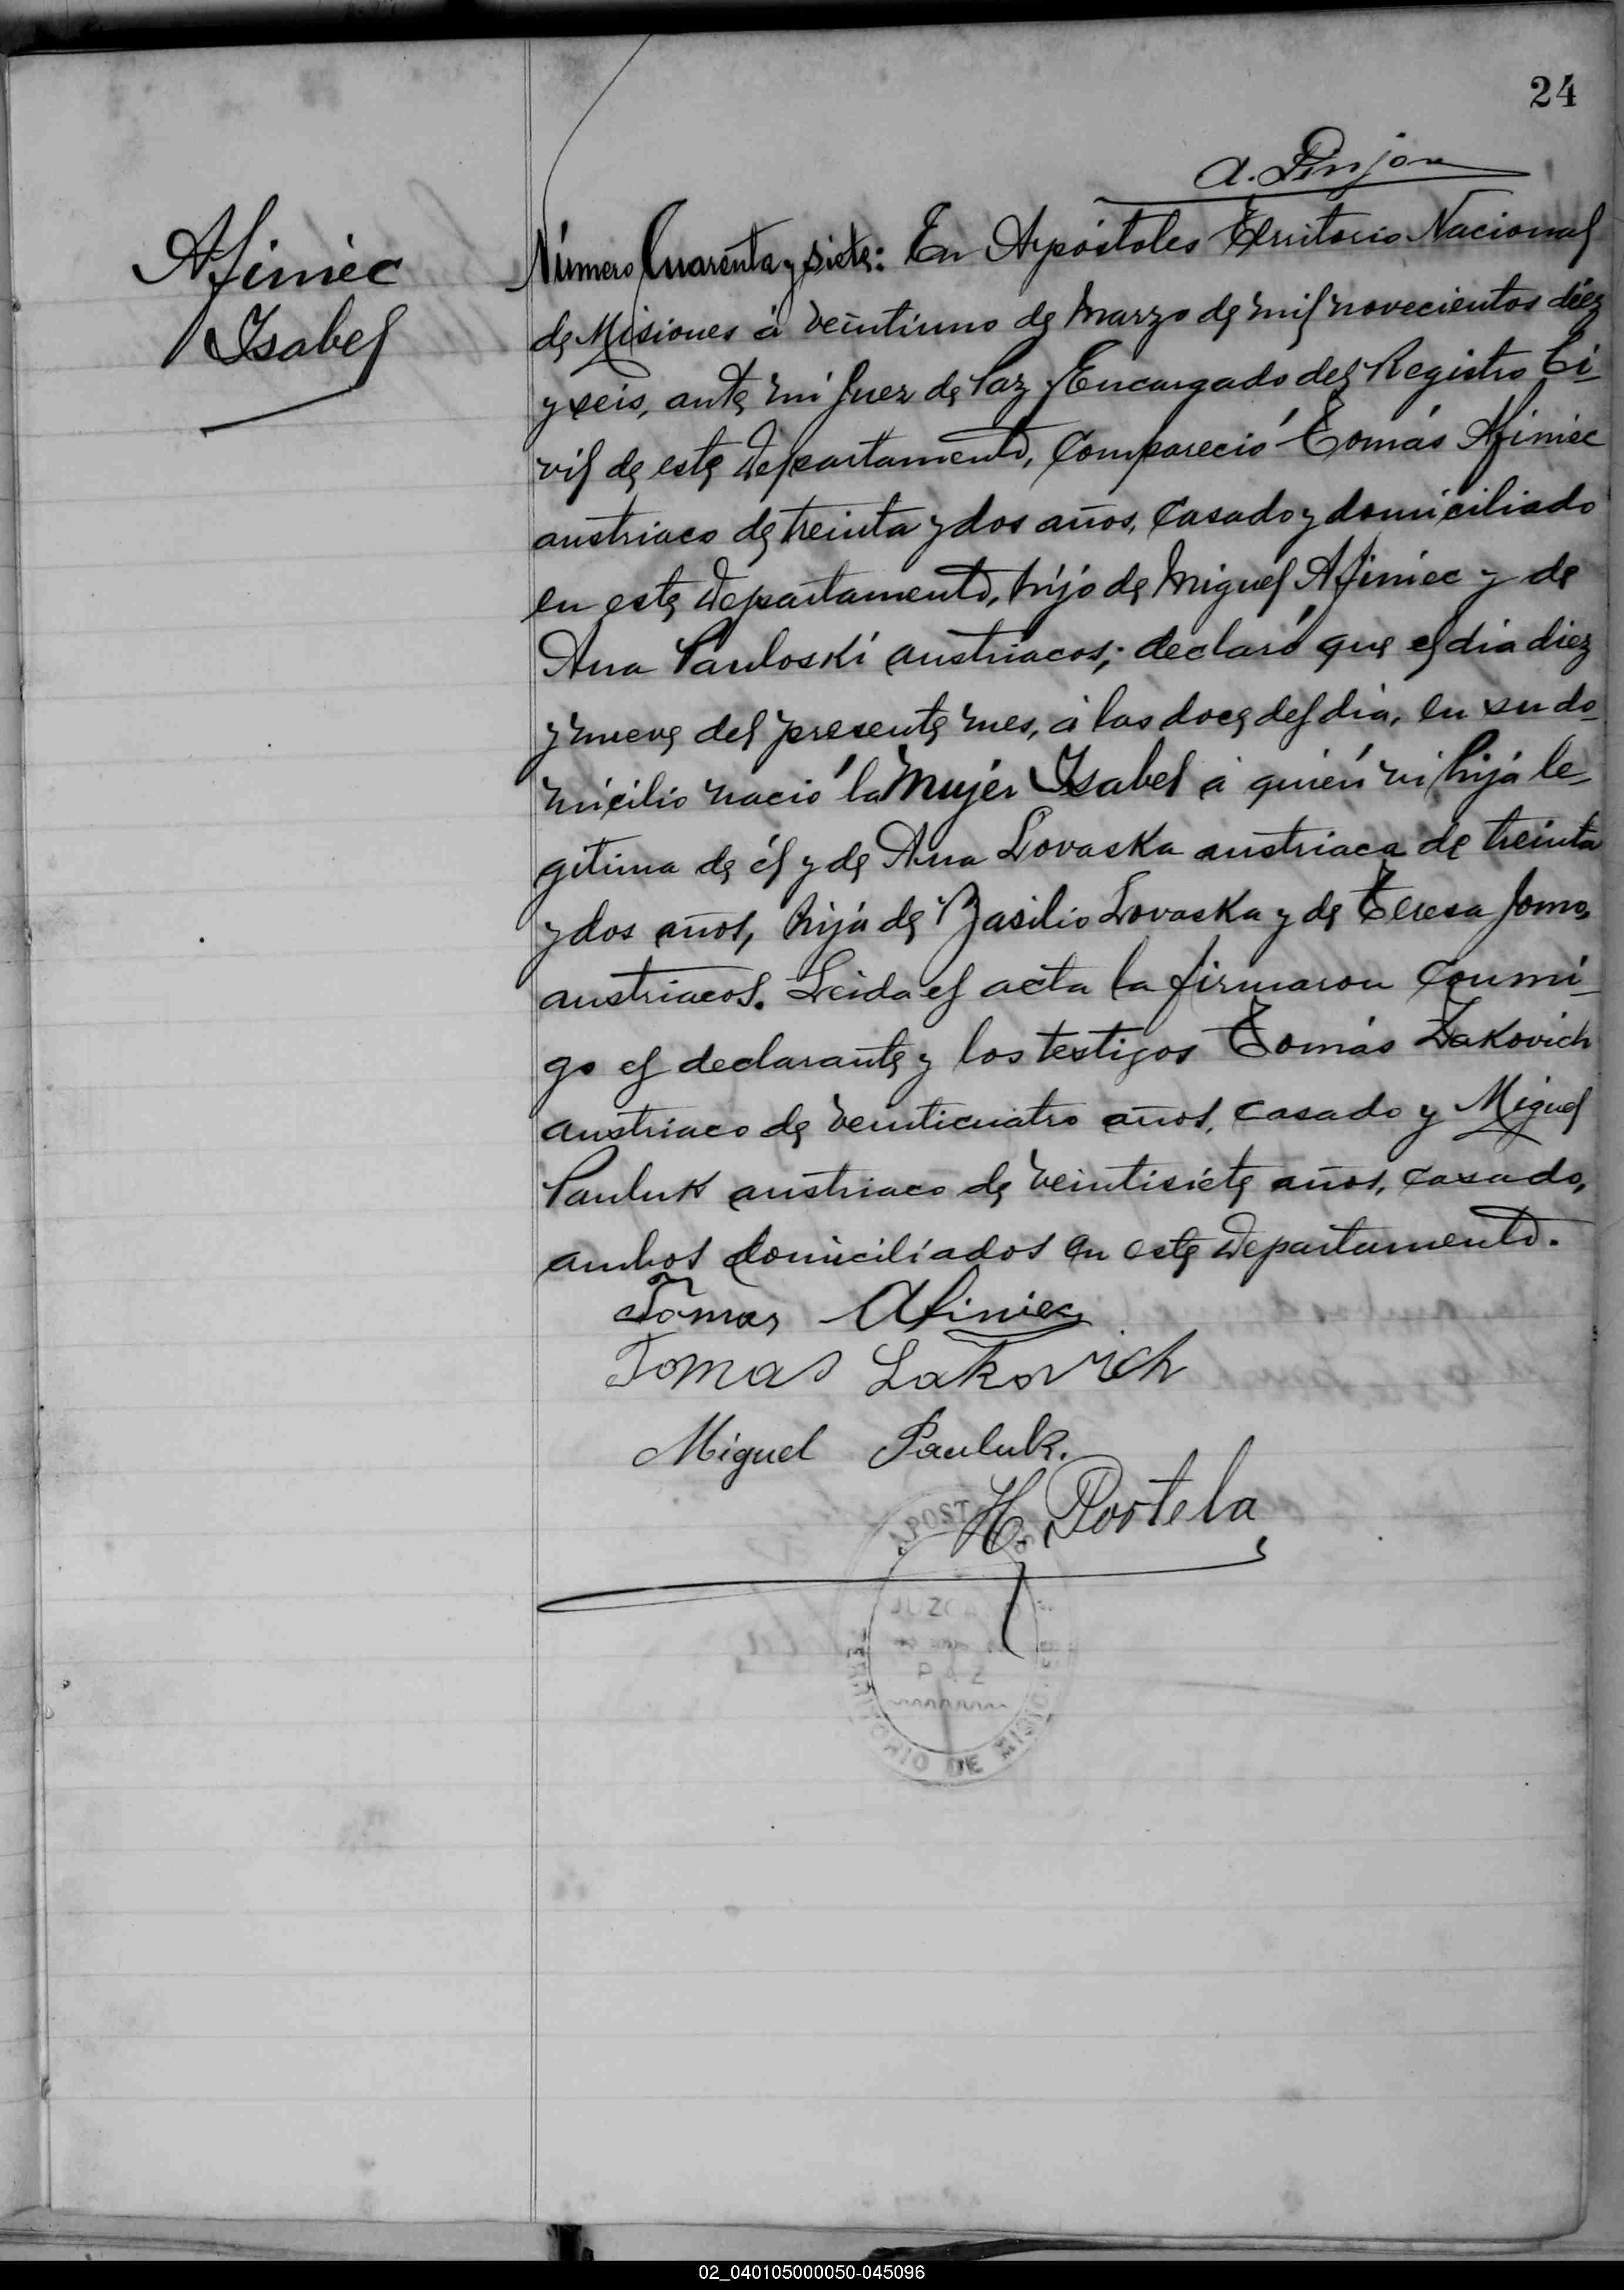 24
A. Pinjon
Afiniec
Isabel
Número Cuarenta y siete: En Apóstoles Territorio Nacional
de Misiones á veintiuno de Marzo de mil novecientos diez
y seis, ante mi Juez de Paz Encargado del Registro Ci-
vil de este Departamento, Compareció Tomás Afiniec
austriaco de treinta y dos años, Casado y domiciliado
en este Departamento, hijo de Miguel Afiniec y de
Ana Pauloski austriacos; declaró que el dia diez
y nueve del presente mes, á las doce del dia, en su do-
micilio nació la Mujer Isabel á quién vi hija le-
gitima de él y de Ana Lovaska austriaca de treinta
y dos años, hija de Basilio Lovaska y de Teresa Jomo,
austriacos. Leida el acta la firmaron Conmi-
go el declarante y los testigos Tomás Lakovich
austriaco de veinticuatro años, casado y Miguel
Pauluk austriaco de veintisiete años, casado,
ambos domiciliados en este Departamento.
Tomas Afiniec
Tomas Lakovich
Miguel Pauluk.
H. Portela
APOSTOLES
JUZGADO
PAZ
TERRITORIO DE MISIONES
02_040105000050-045096